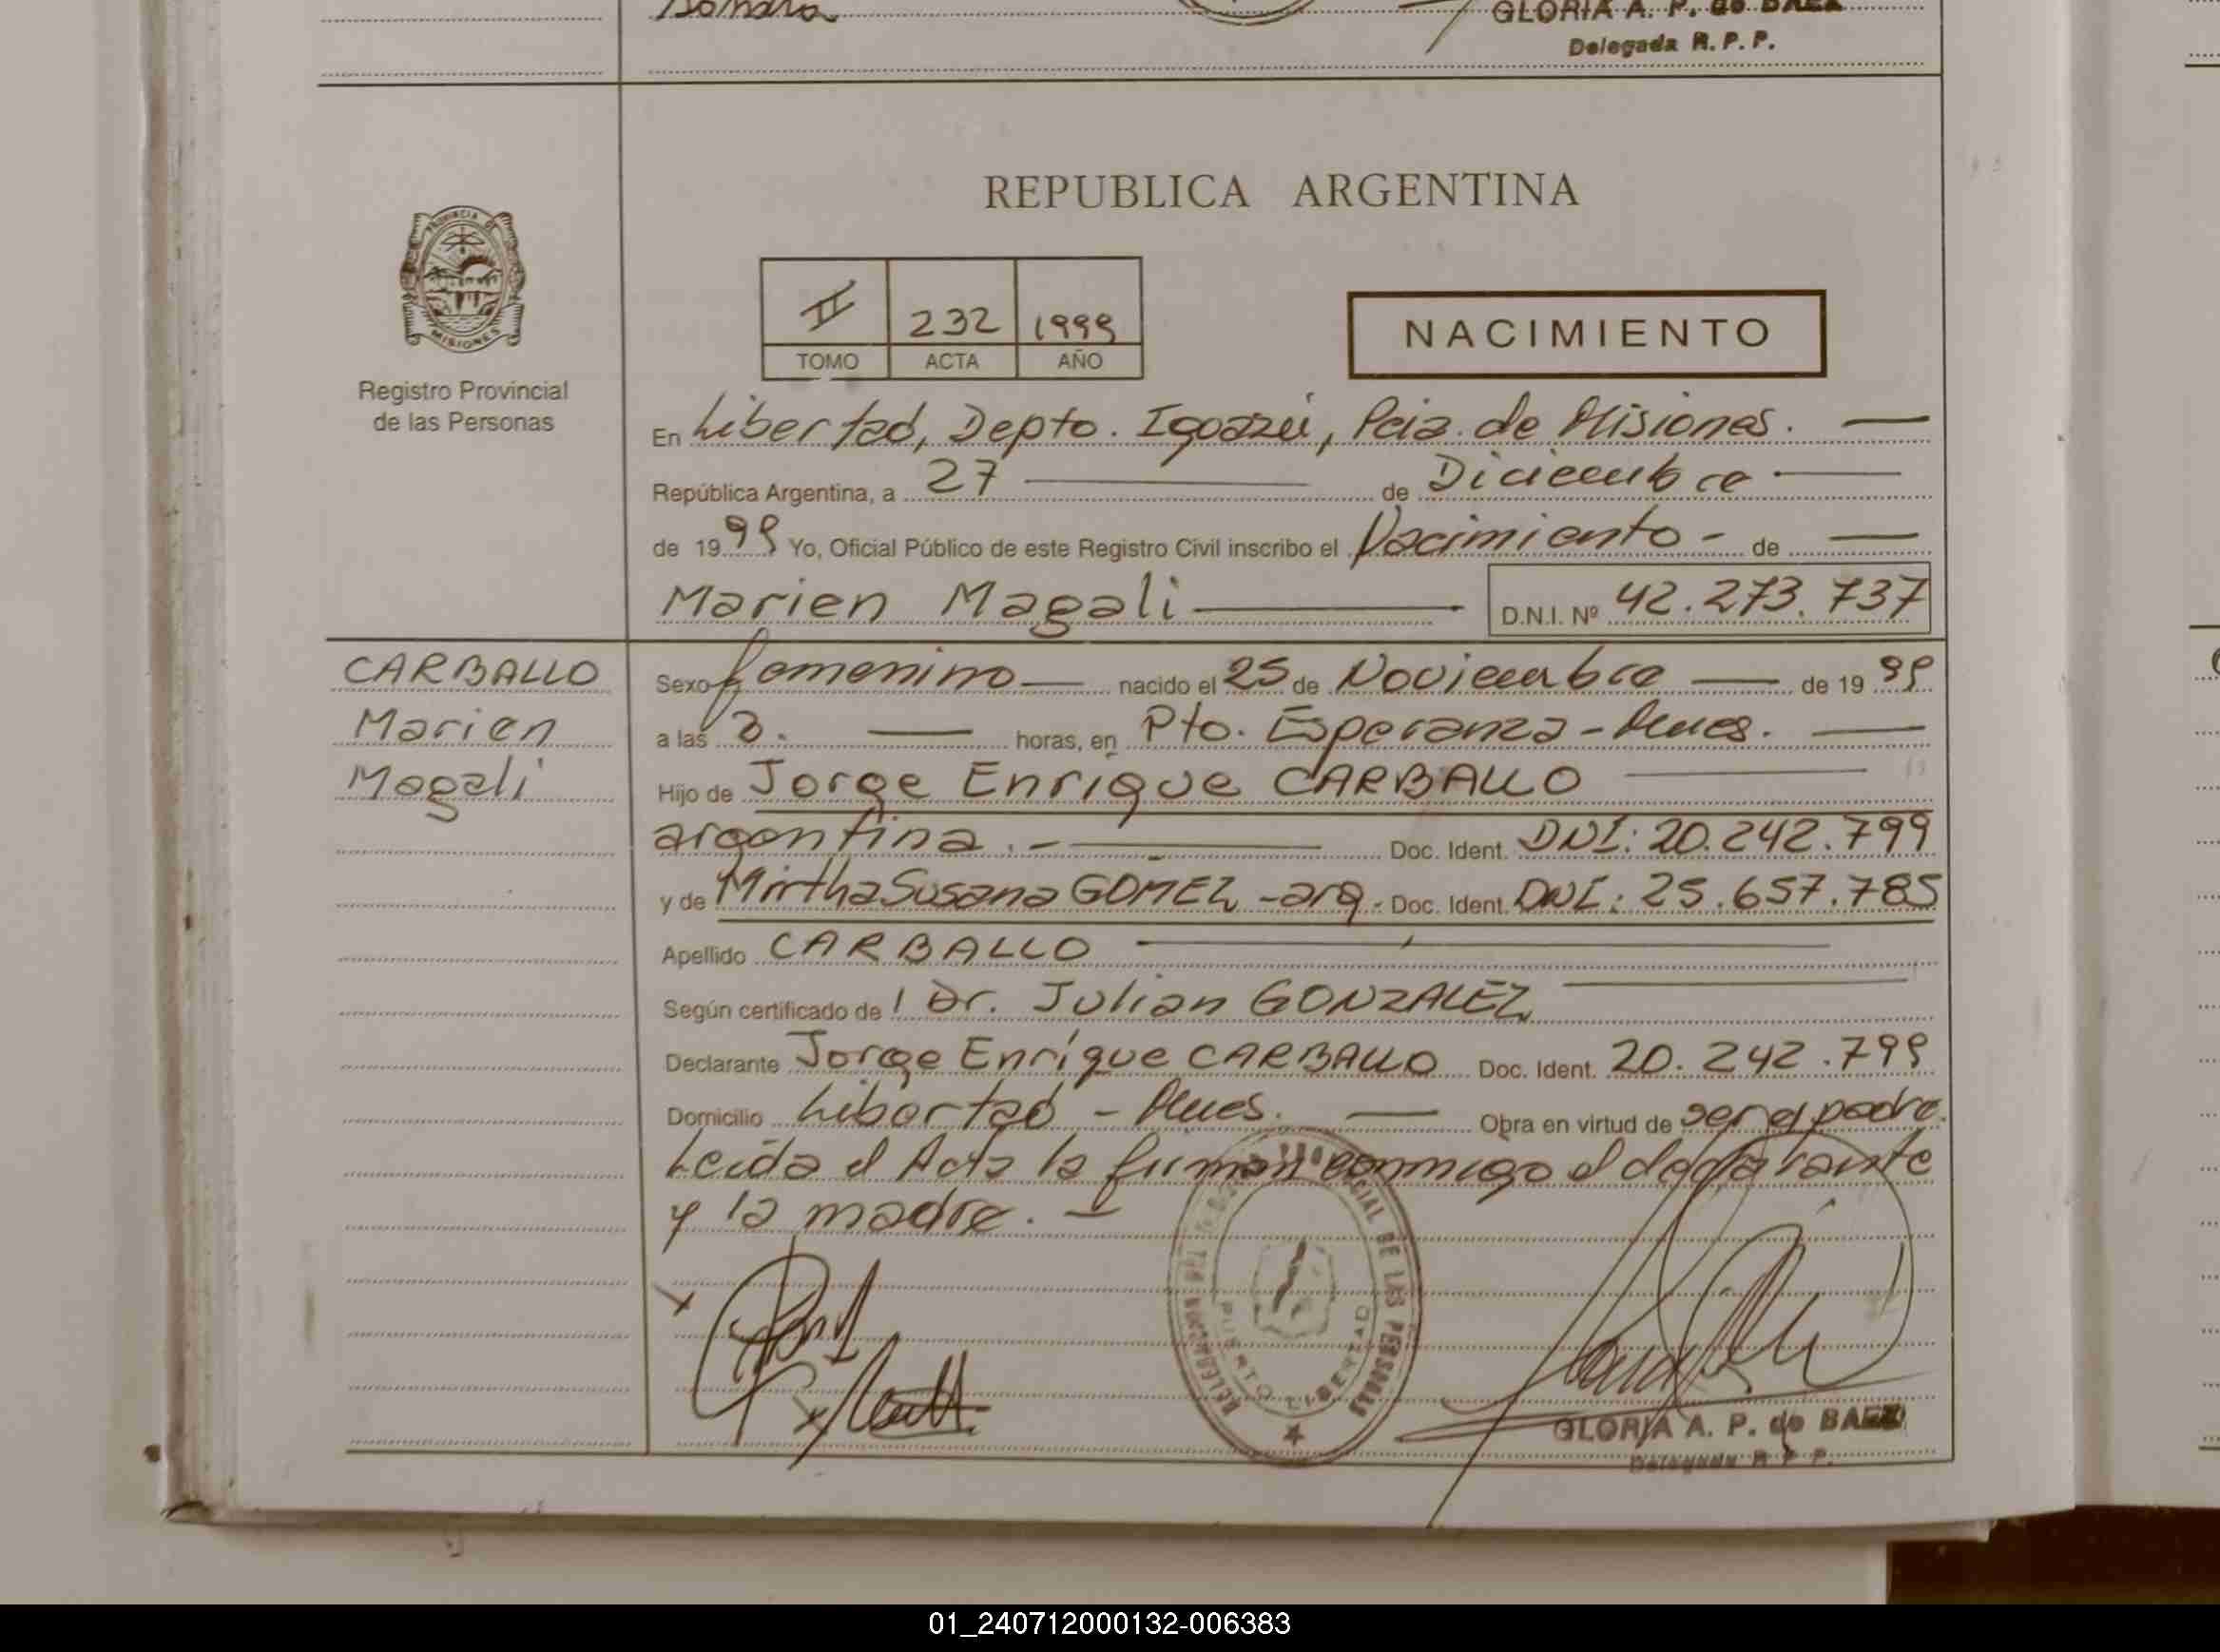 Sandra
GLORIA A. P. de BAEZ
Delegada R. P. P.
REPUBLICA ARGENTINA
PROVINCIA DE
MISIONES
Registro Provincial
de las Personas
II 232 1999
TOMO ACTA AÑO
NACIMIENTO
En Libertad, Depto. Iguazú, Pcia. de Misiones.
República Argentina, a 27 de Diciembre
de 1999 Yo, Oficial Público de este Registro Civil inscribo el Nacimiento - de
Marien Magali D.N.I. Nº 42.273.737
CARBALLO
Marien
Magali
Sexo femenino nacido el 25 de Noviembre de 1999
a las 3. horas, en Pto. Esperanza - Mnes.
Hijo de Jorge Enrique CARBALLO
argentina.- Doc. Ident. DNI: 20.242.799
y de Mirtha Susana GOMEZ - arg. Doc. Ident. DNI: 25.657.785
Apellido CARBALLO
Según certificado de l Dr. Julian GONZALEZ
Declarante Jorge Enrique CARBALLO Doc. Ident. 20.242.799
Domicilio Libertad - Mnes. Obra en virtud de ser el padre.
Leida el Acta la firman conmigo el declarante
y la madre.
DELEGACION PROVINCIAL DE LAS PERSONAS
PUERTO LIBERTAD
GLORIA A. P. de BAEZ
Delegada R. P. P.
01_240712000132-006383